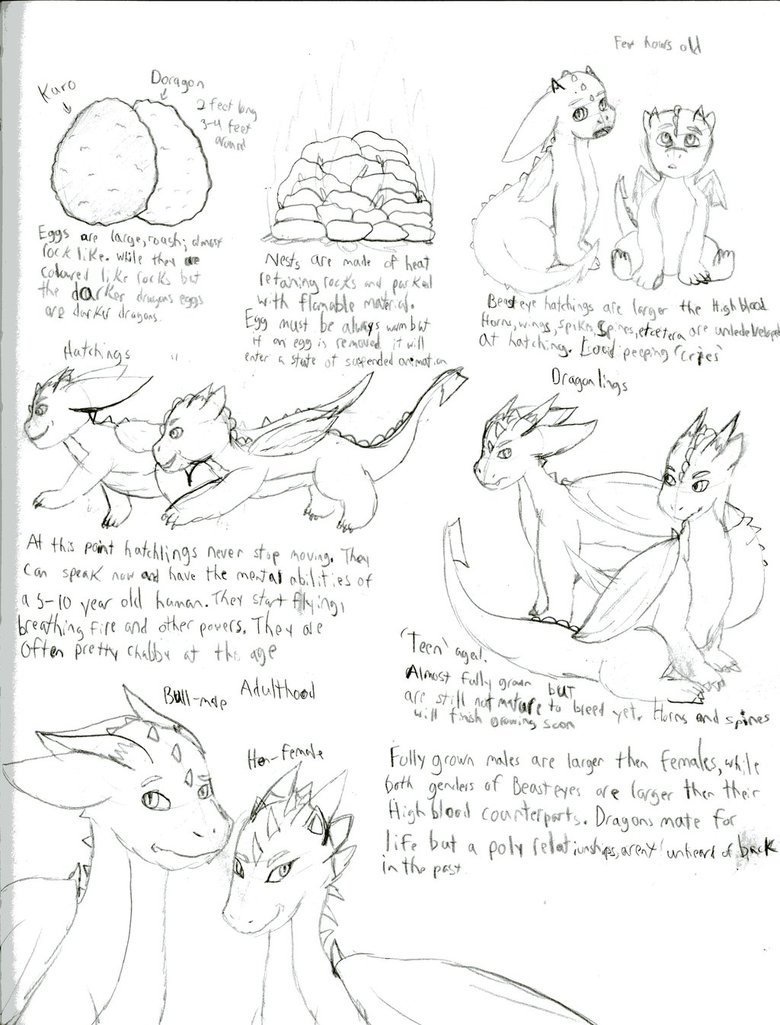 Few hours old
Karo
Doragon
2 feet long
3-4 feet
around
Eggs are large, roash, almost
rock like. While they are
coloured like rocks but
the darker dragons eggs
are darker dragons.
Nests are made of heat
retaining rocks and packed
with flamable material.
Egg must be always warm but
if an egg is removed it will
enter a state of suspended animation
Beasteye hatchings are larger the High blood
Horns, wings, spikes, spines, etcetera are
at hatching. Loud peeping 'cries'
Hatchings
At this point hatchlings never stop moving. They
can speak now and have the mental abilities of
a 5-10 year old human. They start flying,
breathing fire and other powers. They are
often pretty chubby at this age
Dragonlings
'Teen' aged.
Almost fully grown but
are still not mature to breed yet. Horns and spines
will finish growing soon
Adulthood
Bull-male
Hen-female
Fully grown males are larger then females, while
both genders of Beasteyes are larger then their
High blood counterparts. Dragons mate for
life but a poly relationships, aren't unheard of back
in the past